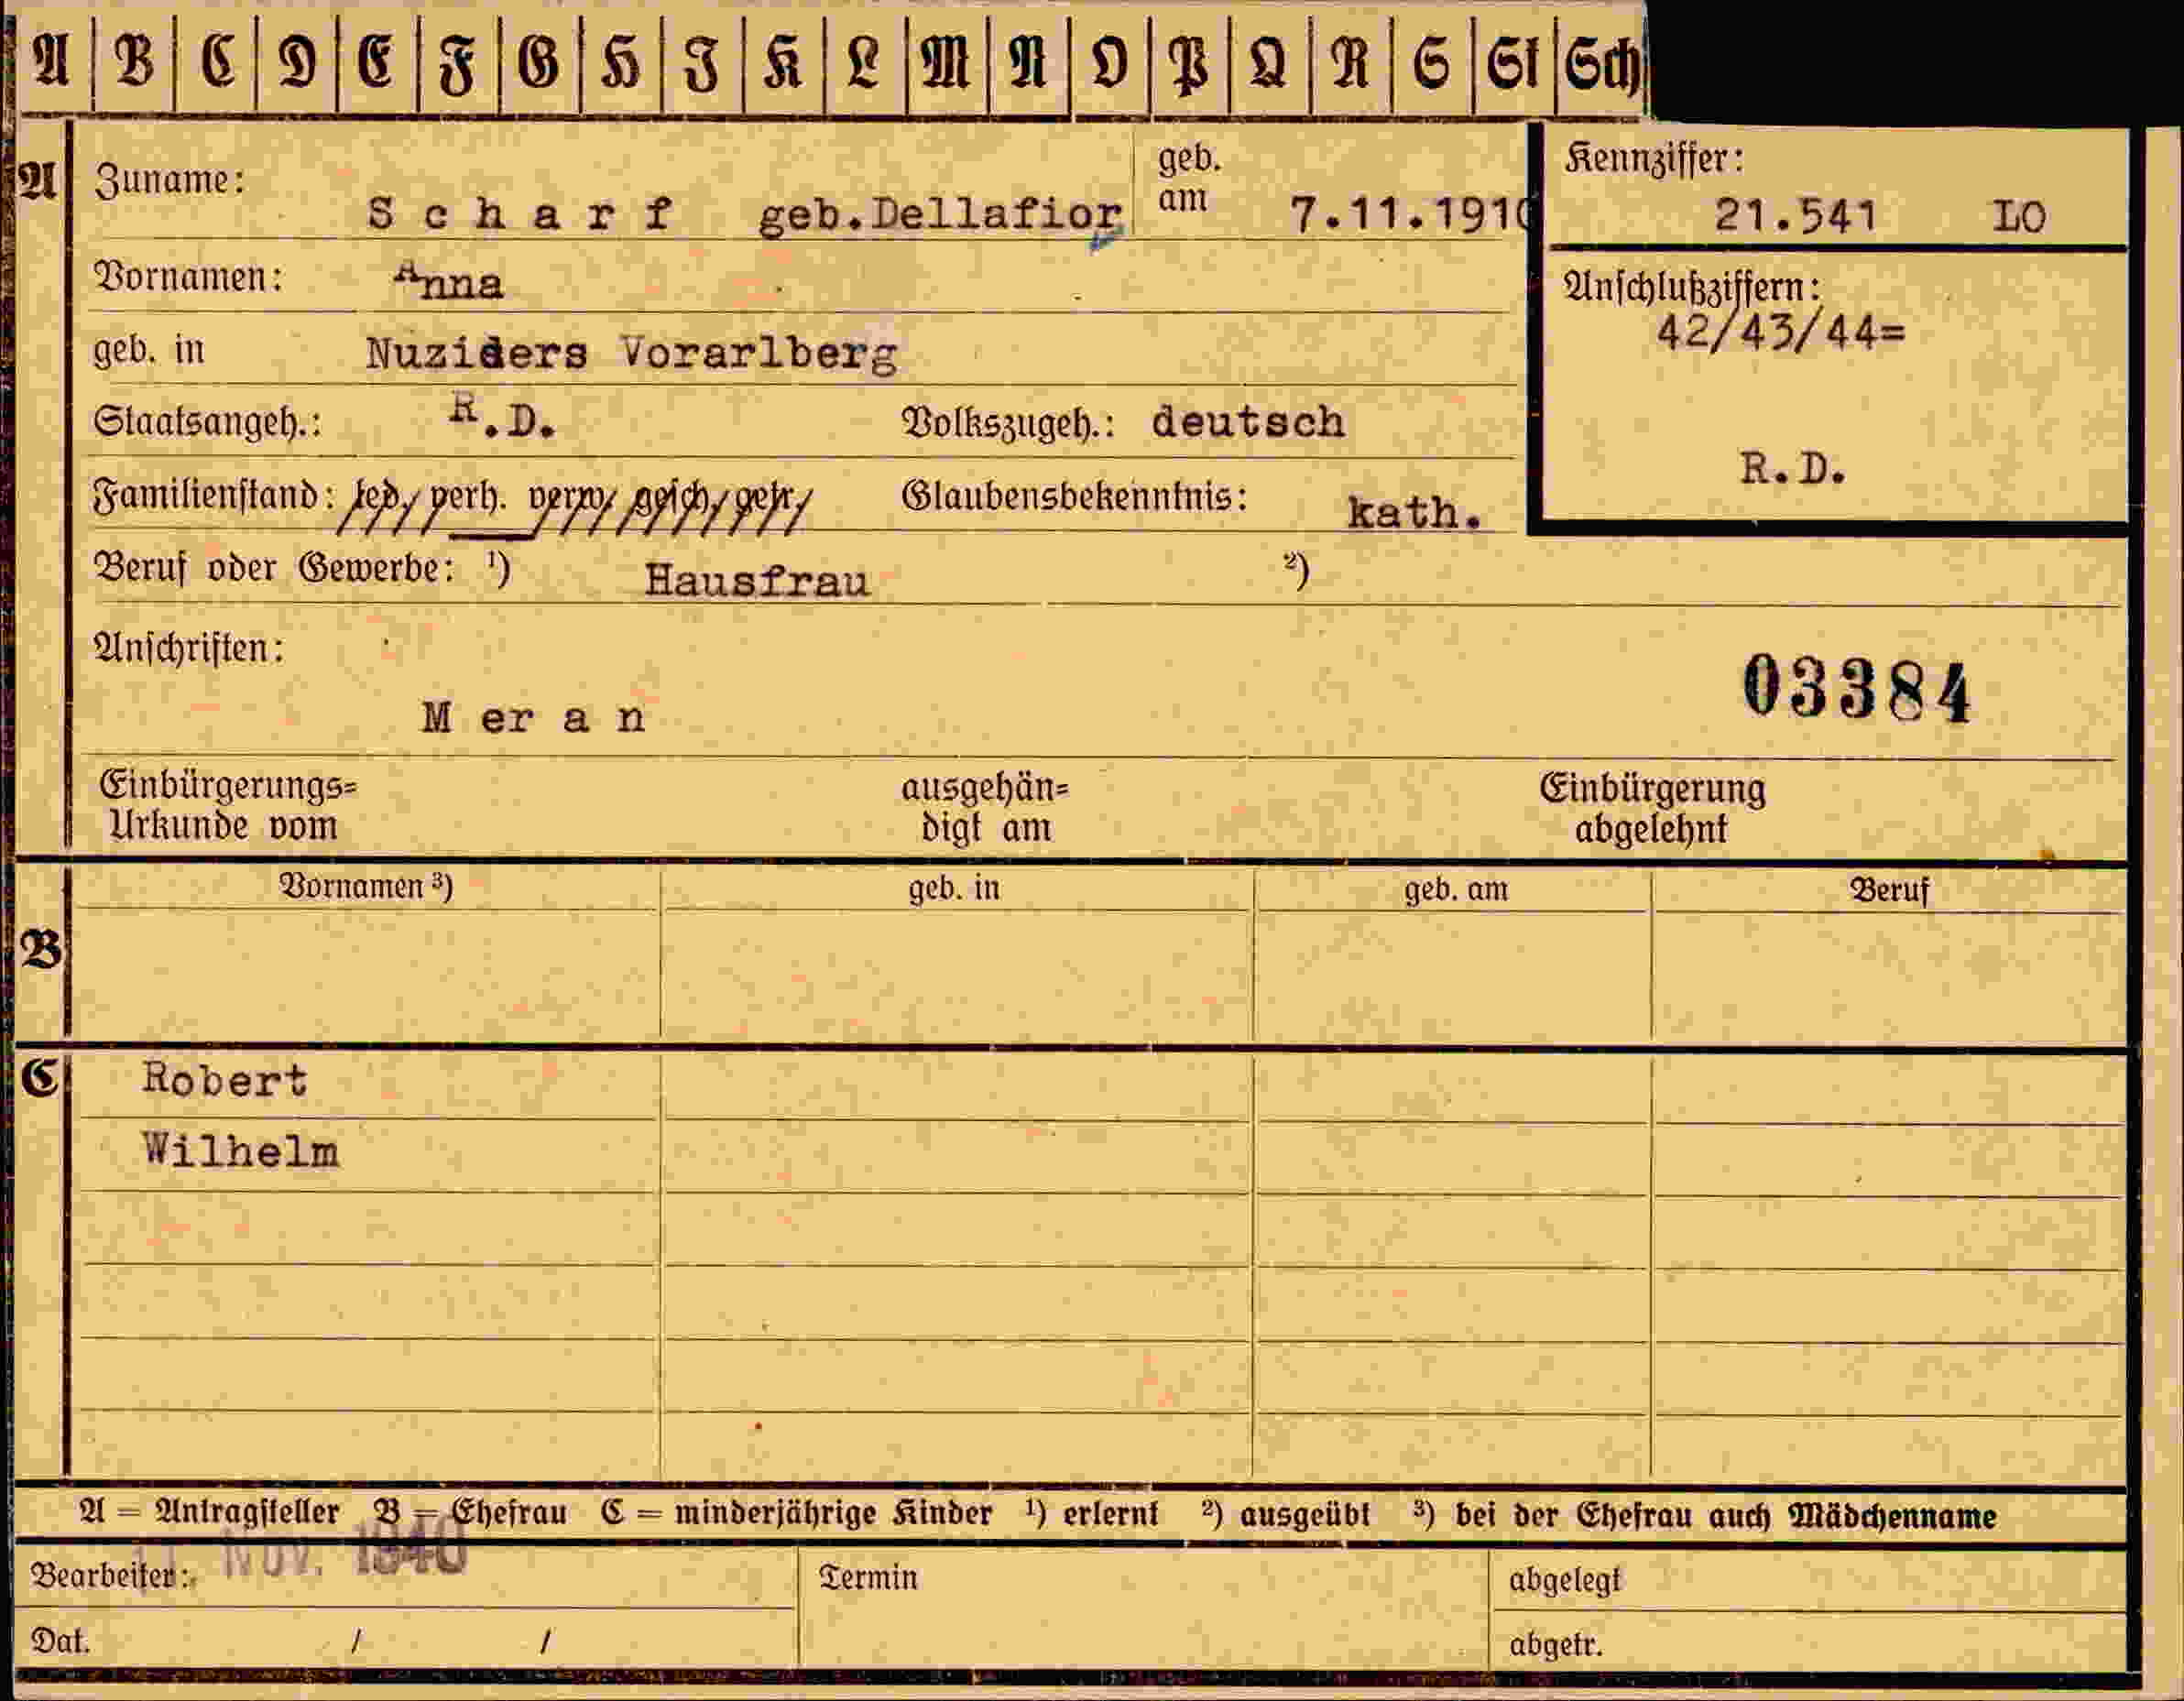 A B C D E F G H I K L M N O P Q R S St Sch
A
Zuname: Scharf geb.Dellafior geb. am 7.11.1910
Kennziffer: 21.541 LO
Vornamen: Anna
Anschlußziffern: 42/43/44=
geb. in Nuziders Vorarlberg
Staatsangeh.: R.D. Volkszugeh.: deutsch
R.D.
Familienstand: led. verh. verw. gesch. getr. Glaubensbekenntnis: kath.
Beruf oder Gewerbe: ¹) Hausfrau ²)
Anschriften:
Meran
03384
Einbürgerungs=
Urkunde vom
ausgehän=
digt am
Einbürgerung
abgelehnt
B
Vornamen ³) geb. in geb. am Beruf
C
Robert
Wilhelm
A = Antragsteller B = Ehefrau C = minderjährige Kinder ¹) erlernt ²) ausgeübt ³) bei der Ehefrau auch Mädchenname
NOV. 1940
Bearbeiter: Termin abgelegt
Dat. / / abgetr.